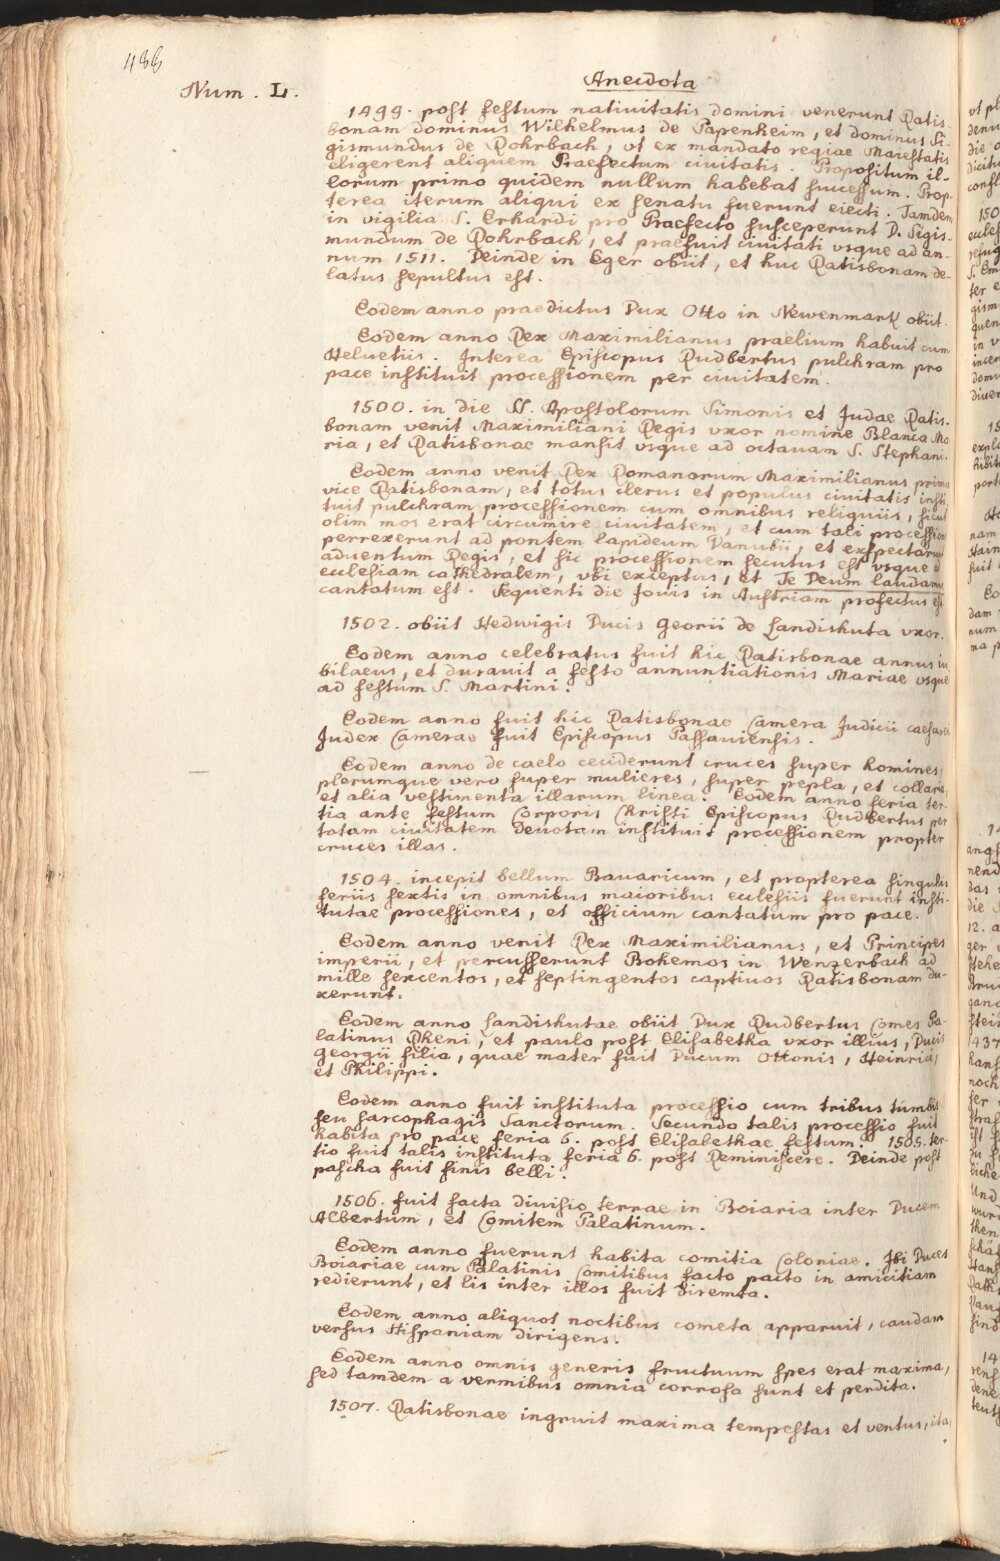 488
Num. L.
Anecdota
1499. post festum natiuitatis domini venerunt Ratis-
bonam dominus Wilhelmus de Papenheim, et dominus Si-
gismundus de Rohrbach, vt ex mandato regiae Maiestatis
eligerent aliquem Praefectum ciuitatis. Propositum il-
lorum primo quidem nullum habebat successum. Prop-
terea iterum aliqui ex senatu fuerunt eiecti. Tamdem
in vigilia S. Erhardi pro Praefecto susceperunt D. Sigis-
mundum de Rohrbach, et praefuit ciuitati vsque ad an-
num 1511. Deinde in Eger obiit, et huc Ratisbonam de-
latus sepultus est.
Eodem anno praedictus Dux Otto in Newenmark obiit.
Eodem anno Rex Maximilianus praelium habuit cum
Helvetiis. Interea Episcopus Rudbertus pulchram pro
pace instituit processionem per ciuitatem.
1500. in die SS. Apostolorum Simonis et Judae Ratis-
bonam venit Maximiliani Regis vxor nomine Blanca Ma
ria, et Ratisbonae mansit vsque ad octauam S. Stephani.
Eodem anno venit Rex Romanorum Maximilianus prima
vice Ratisbonam, et totus clerus et populus ciuitatis insti
tuit pulchram processionem cum omnibus reliquiis, sicut
olim mos erat circumire ciuitatem, et cum tali procession
perrexerunt ad pontem lapideum Danubii, et exspectarunt
aduentum Regis, et sic processionem secutus est vsque a
ecclesiam cathedralem, vbi exceptus, et Te Deum laudamus
cantatum est. Sequenti die Jouis in Austriam profectus est
1502. obiit Hedwigis Ducis Georii de Landishuta vxor.
Eodem anno celebratus fuit hic Ratisbonae annus iu
bilaeus, et durauit a festo annuntiationis Mariae vsque
ad festum S. Martini.
Eodem anno fuit hic Ratisbonae Camera Judicii caesarei
Judex Camerae fuit Episcopus Passauiensis.
Eodem anno de caelo ceciderunt cruces super homines,
plerumque vero super mulieres, super pepla, et collaria,
et alia vestimenta illarum linea. Eodem anno feria ter-
tia ante festum Corporis Christi Episcopus Rudbertus per
totam ciuitatem deuotam instituit processionem propter
cruces illas.
1504. incepit bellum Bauaricum, et propterea singulis
feriis sextis in omnibus maioribus ecclesiis fuerunt insti-
tutae processiones, et officium cantatum pro pace.
Eodem anno venit Rex Maximilianus, et Principes
imperii, et percusserunt Bohemos in Wenzerbach ad
mille sexcentos, et septingentos captiuos Ratisbonam du-
xerunt.
Eodem anno Landishutae obiit Dux Rudbertus Comes Pa-
latinus Rheni, et paulo post Elisabetha vxor illius, Ducis
Georgii filia, quae mater fuit Ducum Ottonis, Heinrici,
et Philippi.
Eodem anno fuit instituta processio cum tribus tumbis
seu sarcophagis Sanctorum. Secundo talis processio fuit
habita pro pace feria 6. post Elisabethae festum. 1505. ter-
tio fuit talis instituta feria 6. post Reminiscere. Deinde post
pascha fuit finis belli.
1506. fuit facta diuisio terrae in Boiaria inter Ducem
Albertum, et Comitem Palatinum.
Eodem anno fuerunt habita comitia Coloniae. Ibi Duces
Boiariae cum Palatinis Comitibus facto pacto in amicitiam
redierunt, et lis inter illos fuit diremta.
Eodem anno aliquot noctibus cometa apparuit, caudam
versus Hispaniam dirigens.
Eodem anno omnis generis fructuum spes erat maxima,
sed tamdem a vermibus omnia corrosa sunt et perdita.
1507. Ratisbonae ingruit maxima tempestas et ventus, ita,